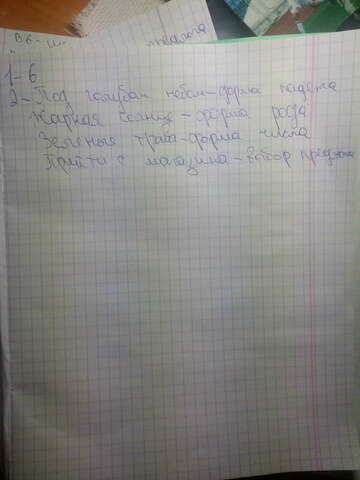 1-6
2-Под голубом небом-форма падежа
Жаркая солнце-форма рода
Зеленые трава-форма числа
Прийти с магазина-выбор предлога